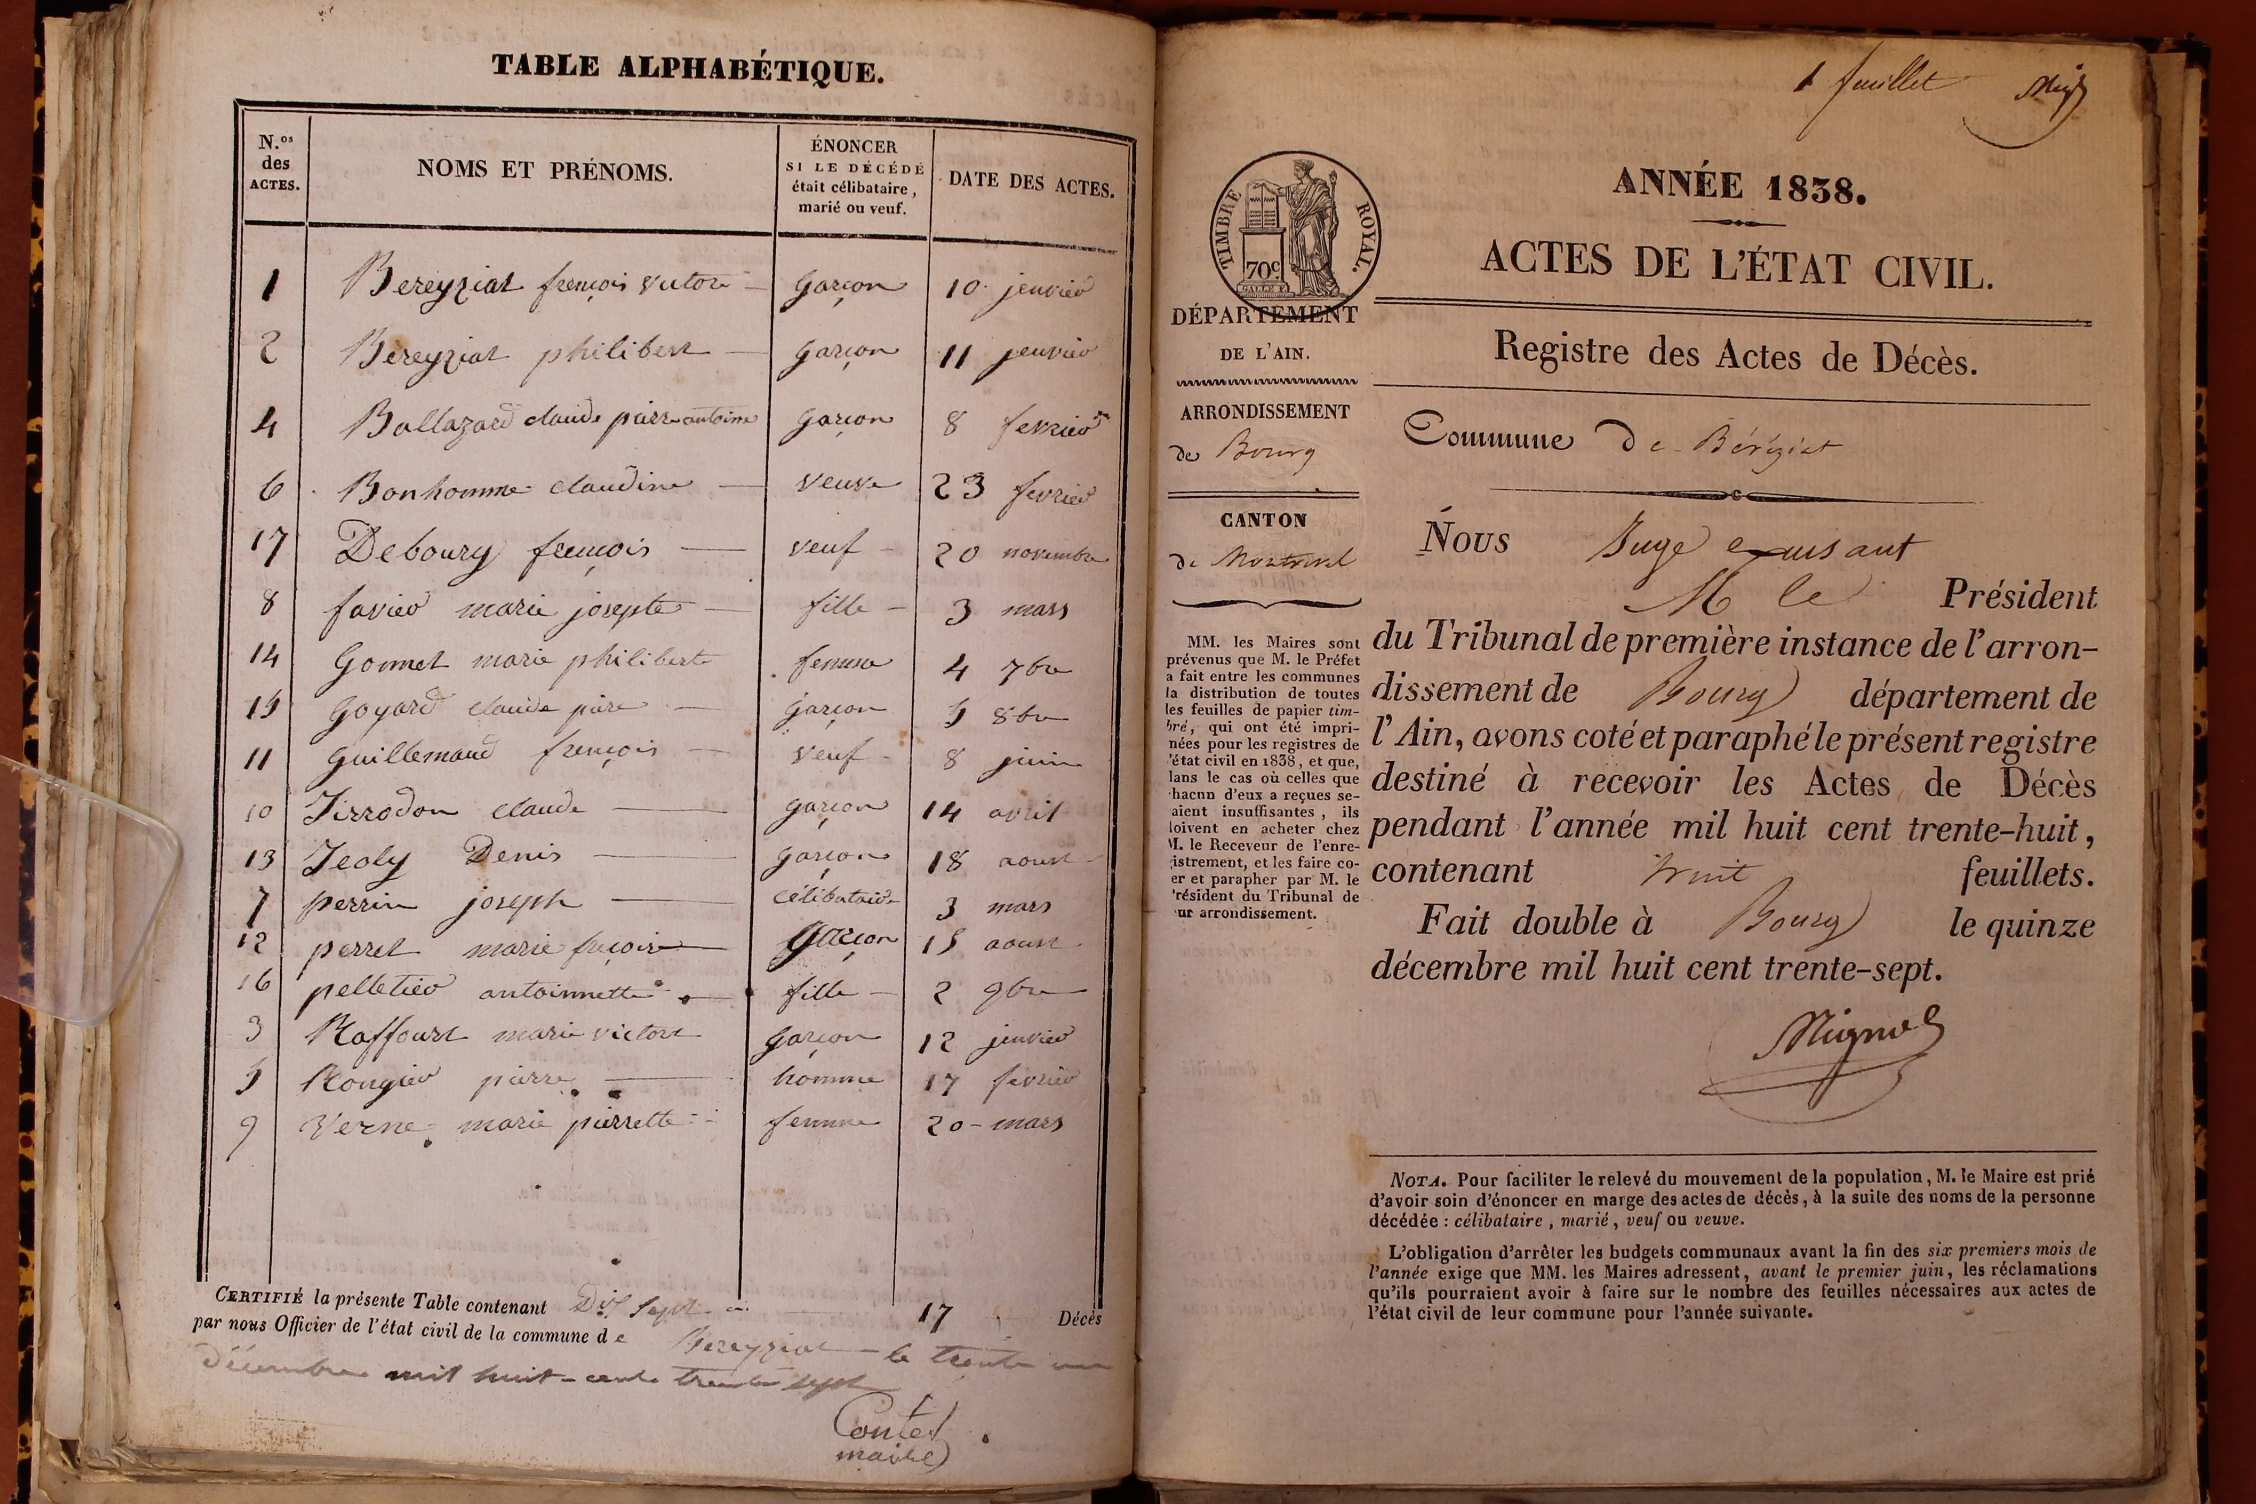 TABLE ALPHABÉTIQUE.
N.os des ACTES.
NOMS ET PRÉNOMS.
ÉNONCER SI LE DÉCÉDÉ était célibataire, marié ou veuf.
DATE DES ACTES.
1 Bereyziat françois victor garçon 10 janvier
2 Bereyziat philibert garçon 11 janvier
4 Ballazard claude pierre antoine garçon 8 fevrier
6 Bonhomme claudine veuve 23 fevrier
17 Debourg françois veuf 20 novembre
8 favier marie josepte fille 3 mars
14 Gonnet marie philiberte femme 4 7bre
15 Goyard claude piere garçon 5 8bre
11 Guillemaud françois veuf 8 juin
10 claude garçon 14 avril
13 Jeoly Denis garçon 18 aoust
7 perrin joseph célibataire 3 mars
12 perret marie garçon 15 aoust
16 pelletier antoinnette fille 2 9bre
3 Raffourt marie victor garçon 12 janvier
5 Rongier pierre homme 17 fevrier
9 Verne marie pierrette femme 20 mars
CERTIFIÉ la présente Table contenant Dix sept 17 Décès
par nous Officier de l'état civil de la commune de Bereyziat le trente un
décembre mil huit cent trente sept
Contet
maire
1 feuillet
TIMBRE ROYAL.
70c.
ANNÉE 1838.
ACTES DE L'ÉTAT CIVIL.
DÉPARTEMENT
DE L'AIN.
ARRONDISSEMENT
de Bourg
CANTON
de Montrevel
MM. les Maires sont
prévenus que M. le Préfet
a fait entre les communes
la distribution de toutes
les feuilles de papier tim-
bré, qui ont été impri-
mées pour les registres de
l'état civil en 1838, et que,
dans le cas où celles que
chacun d'eux a reçues se-
raient insuffisantes, ils
doivent en acheter chez
M. le Receveur de l'enre-
gistrement, et les faire co-
ter et parapher par M. le
Président du Tribunal de
leur arrondissement.
Registre des Actes de Décès.
Commune De Béréziat
Nous Juge
M le Président
du Tribunal de première instance de l'arron-
dissement de Bourg département de
l'Ain, avons coté et paraphé le présent registre
destiné à recevoir les Actes de Décès
pendant l'année mil huit cent trente-huit,
contenant huit feuillets.
Fait double à Bourg le quinze
décembre mil huit cent trente-sept.
NOTA. Pour faciliter le relevé du mouvement de la population, M. le Maire est prié
d'avoir soin d'énoncer en marge des actes de décès, à la suite des noms de la personne
décédée : célibataire, marié, veuf ou veuve.
L'obligation d'arrêter les budgets communaux avant la fin des six premiers mois de
l'année exige que MM. les Maires adressent, avant le premier juin, les réclamations
qu'ils pourraient avoir à faire sur le nombre des feuilles nécessaires aux actes de
l'état civil de leur commune pour l'année suivante.